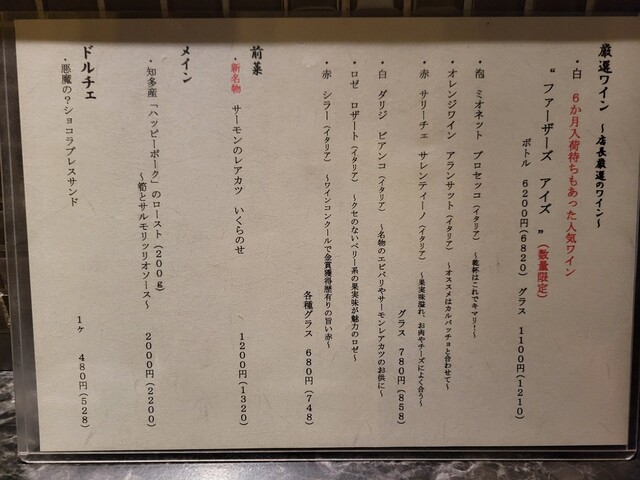 厳選ワイン ～店長厳選のワイン～
・白 6か月入荷待ちもあった人気ワイン
“ファーザーズ アイズ”（数量限定）
ボトル 6200円(6820) グラス 1100円(1210)
・泡 ミオネット プロセッコ（イタリア） ～乾杯はこれでキマリ！～
・オレンジワイン アランサット（イタリア） ～オススメはカルパッチョと合わせて～
・赤 サリーチェ サレンティーノ（イタリア） ～果実味溢れ、お肉やチーズによく合う～
グラス 780円(858)
・白 ダリジ ビアンコ（イタリア） ～名物のエビパリやサーモンレアカツのお供に～
・ロゼ ロザート（イタリア） ～クセのないベリー系の果実味が魅力のロゼ～
・赤 シラー（イタリア） ～ワインコンクールで金賞獲得歴有りの旨い赤～
各種グラス 680円(748)
前菜
・新名物 サーモンのレアカツ いくらのせ 1200円(1320)
メイン
・知多産「ハッピーポーク」のロースト（200g）
～筍とサルモリッリオソース～ 2000円(2200)
ドルチェ
・悪魔の？ショコラブレスサンド 1ヶ 480円(528)